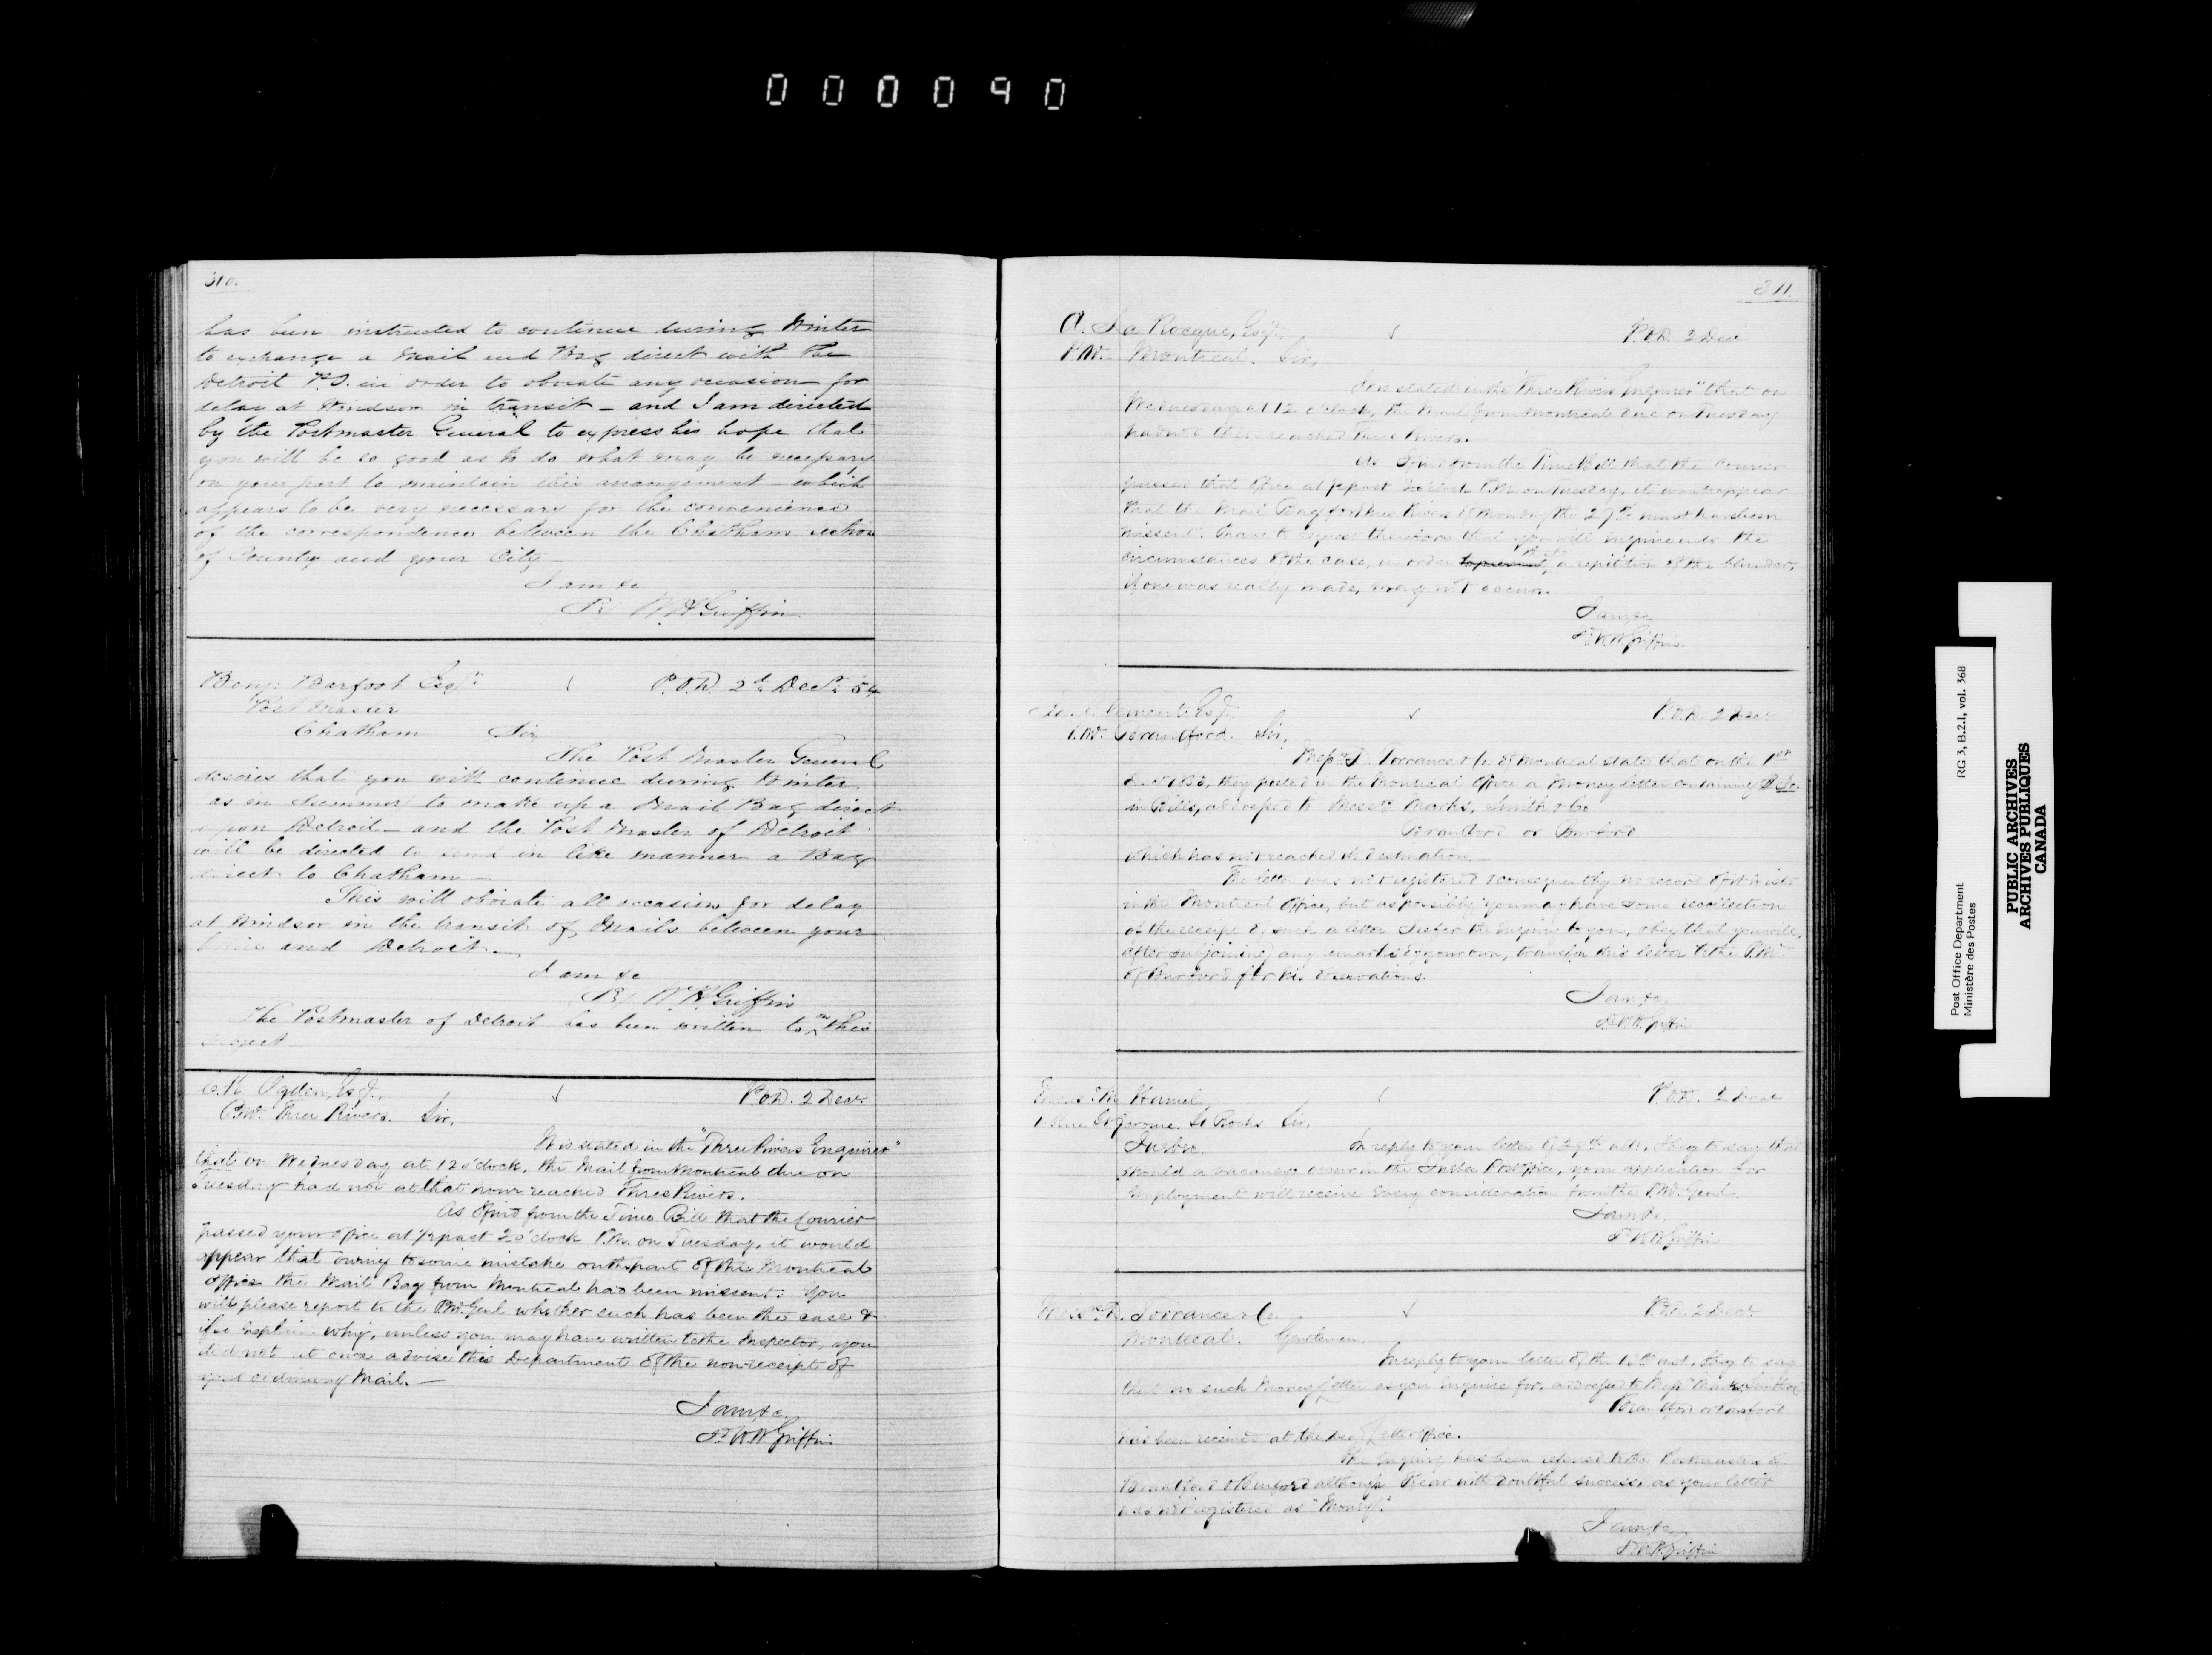 000090
310.
has been instructed to continue during Winter
to exchange a Mail and Bag direct with the
Detroit P.O. in order to obviate any occasion for
delay at Windsor in transit – and I am directed
by the Postmaster General to express his hope that
you will be so good as to do what may be necessary
on your part to maintain this arrangement – which
appears to be very necessary for the convenience
of the correspondence between the Chatham section
of Country and your City
I am &c
W H Griffin
Benj. Barfoot Esqr.
P.O.D. 2d. Decr. 54
Post Master
Chatham Sir,
The Post Master General
desires that you will continue during Winter
as in Summer to make up a Mail Bag direct
upon Detroit – and the Post Master of Detroit
will be directed to send in like manner a Bag
direct to Chatham –
This will obviate all occasion for delay
at Windsor in the transit of Mails between your
and Detroit.
I am &c
W H Griffin
The Postmaster of Detroit has been written to on this
subject
Ogden, Esqr.,
P.O.D. 2 Decr.
P.M. Three Rivers. Sir,
It is stated in the "Three Rivers Enquirer"
that on Wednesday at 12 o'clock, the Mail from Montreal due on
Tuesday had not at that hour reached Three Rivers.
As I find from the Time Bill that the Courier
passed your office at ½ past 2 o'clock P.M. on Tuesday, it would
appear that owing to some mistake on the part of the Montreal
office the Mail Bag from Montreal had been missent. You
will please report to the P.M. Genl. whether such has been the case &
if so explain why, unless you may have written to the Inspector, you
did not at once advise this Department of the non-receipt of
your ordinary Mail. –
I am &c.
W H Griffin
311.
A. La Rocque, Esqr.,
P.O.D. 2 Decr.
P.M. Montreal. Sir,
It is stated in the "Three Rivers Enquirer" that on
Wednesday at 12 o'clock, the Mail from Montreal due on Tuesday
had not then reached Three Rivers.
As I find from the Time Bill that the Courier
passed that office at ½ past 2 o'clock P.M. on Tuesday, it would appear
that the Mail Bag for Three Rivers of Monday the 27th must have been
missent. I have to request therefore that you will enquire into the
circumstances of the case, in order to prevent that a repetition of the blunder,
if one was really made, may not occur.
I am &c
W H Griffin.
Clement, Esqr.,
P.O.D. 2 Decr.
P.M. Brantford. Sir,
Messrs. D. Torrance & Co. of Montreal state that on the 1st
Decr. 1853, they posted in the Montreal office a Money letter containing
in Bills, addressed to Messrs. Marks, Smith & Co.
Brantford or Burford
which has not reached its destination. –
The letter was not registered & consequently no record of it exists
in the Montreal office, but as possibly you may have some recollection
of the receipt of such a letter I refer the enquiry to you, & beg that you will,
after subjoining any remarks of your own, transfer this letter to the P.M.
of Burford for his observations.
I am &c.
W H Griffin
Hamel,
P.O.D. 2 Decr.
St. Jerome, St Rochs Sir,
Quebec. In reply to your letter of 29th ult., I beg to say that
should a vacancy occur in the Quebec Post office, your application for
employment will receive every consideration from the P.M. Genl.
I am &c.
W H Griffin
Messrs. D. Torrance & Co.
P.O.D. 2 Decr.
Montreal. Gentlemen,
In reply to your letter of the inst., I beg to say
that no such Money Letter as you enquire for, addressed to Messrs. Marks, Smith & Co
Brantford or Burford
has been received at the Dead Letter office.
The enquiry has been referred to the Postmasters of
Brantford & Burford although I fear with doubtful success, as your letter
was not registered as "Money".
I am &c.
W H Griffin
Post Office Department RG 3, B.2.I, vol. 368
Ministère des Postes
PUBLIC ARCHIVES
ARCHIVES PUBLIQUES
CANADA